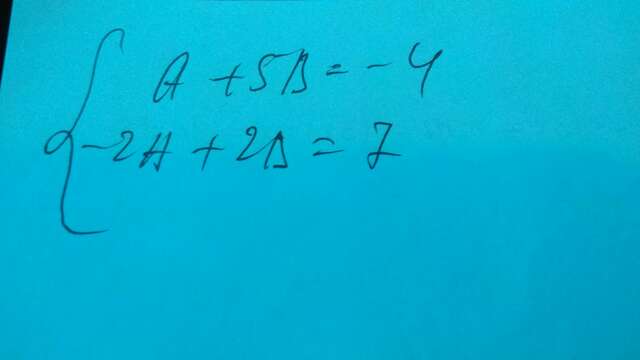 A + 5B = -4
-2A + 2B = 7